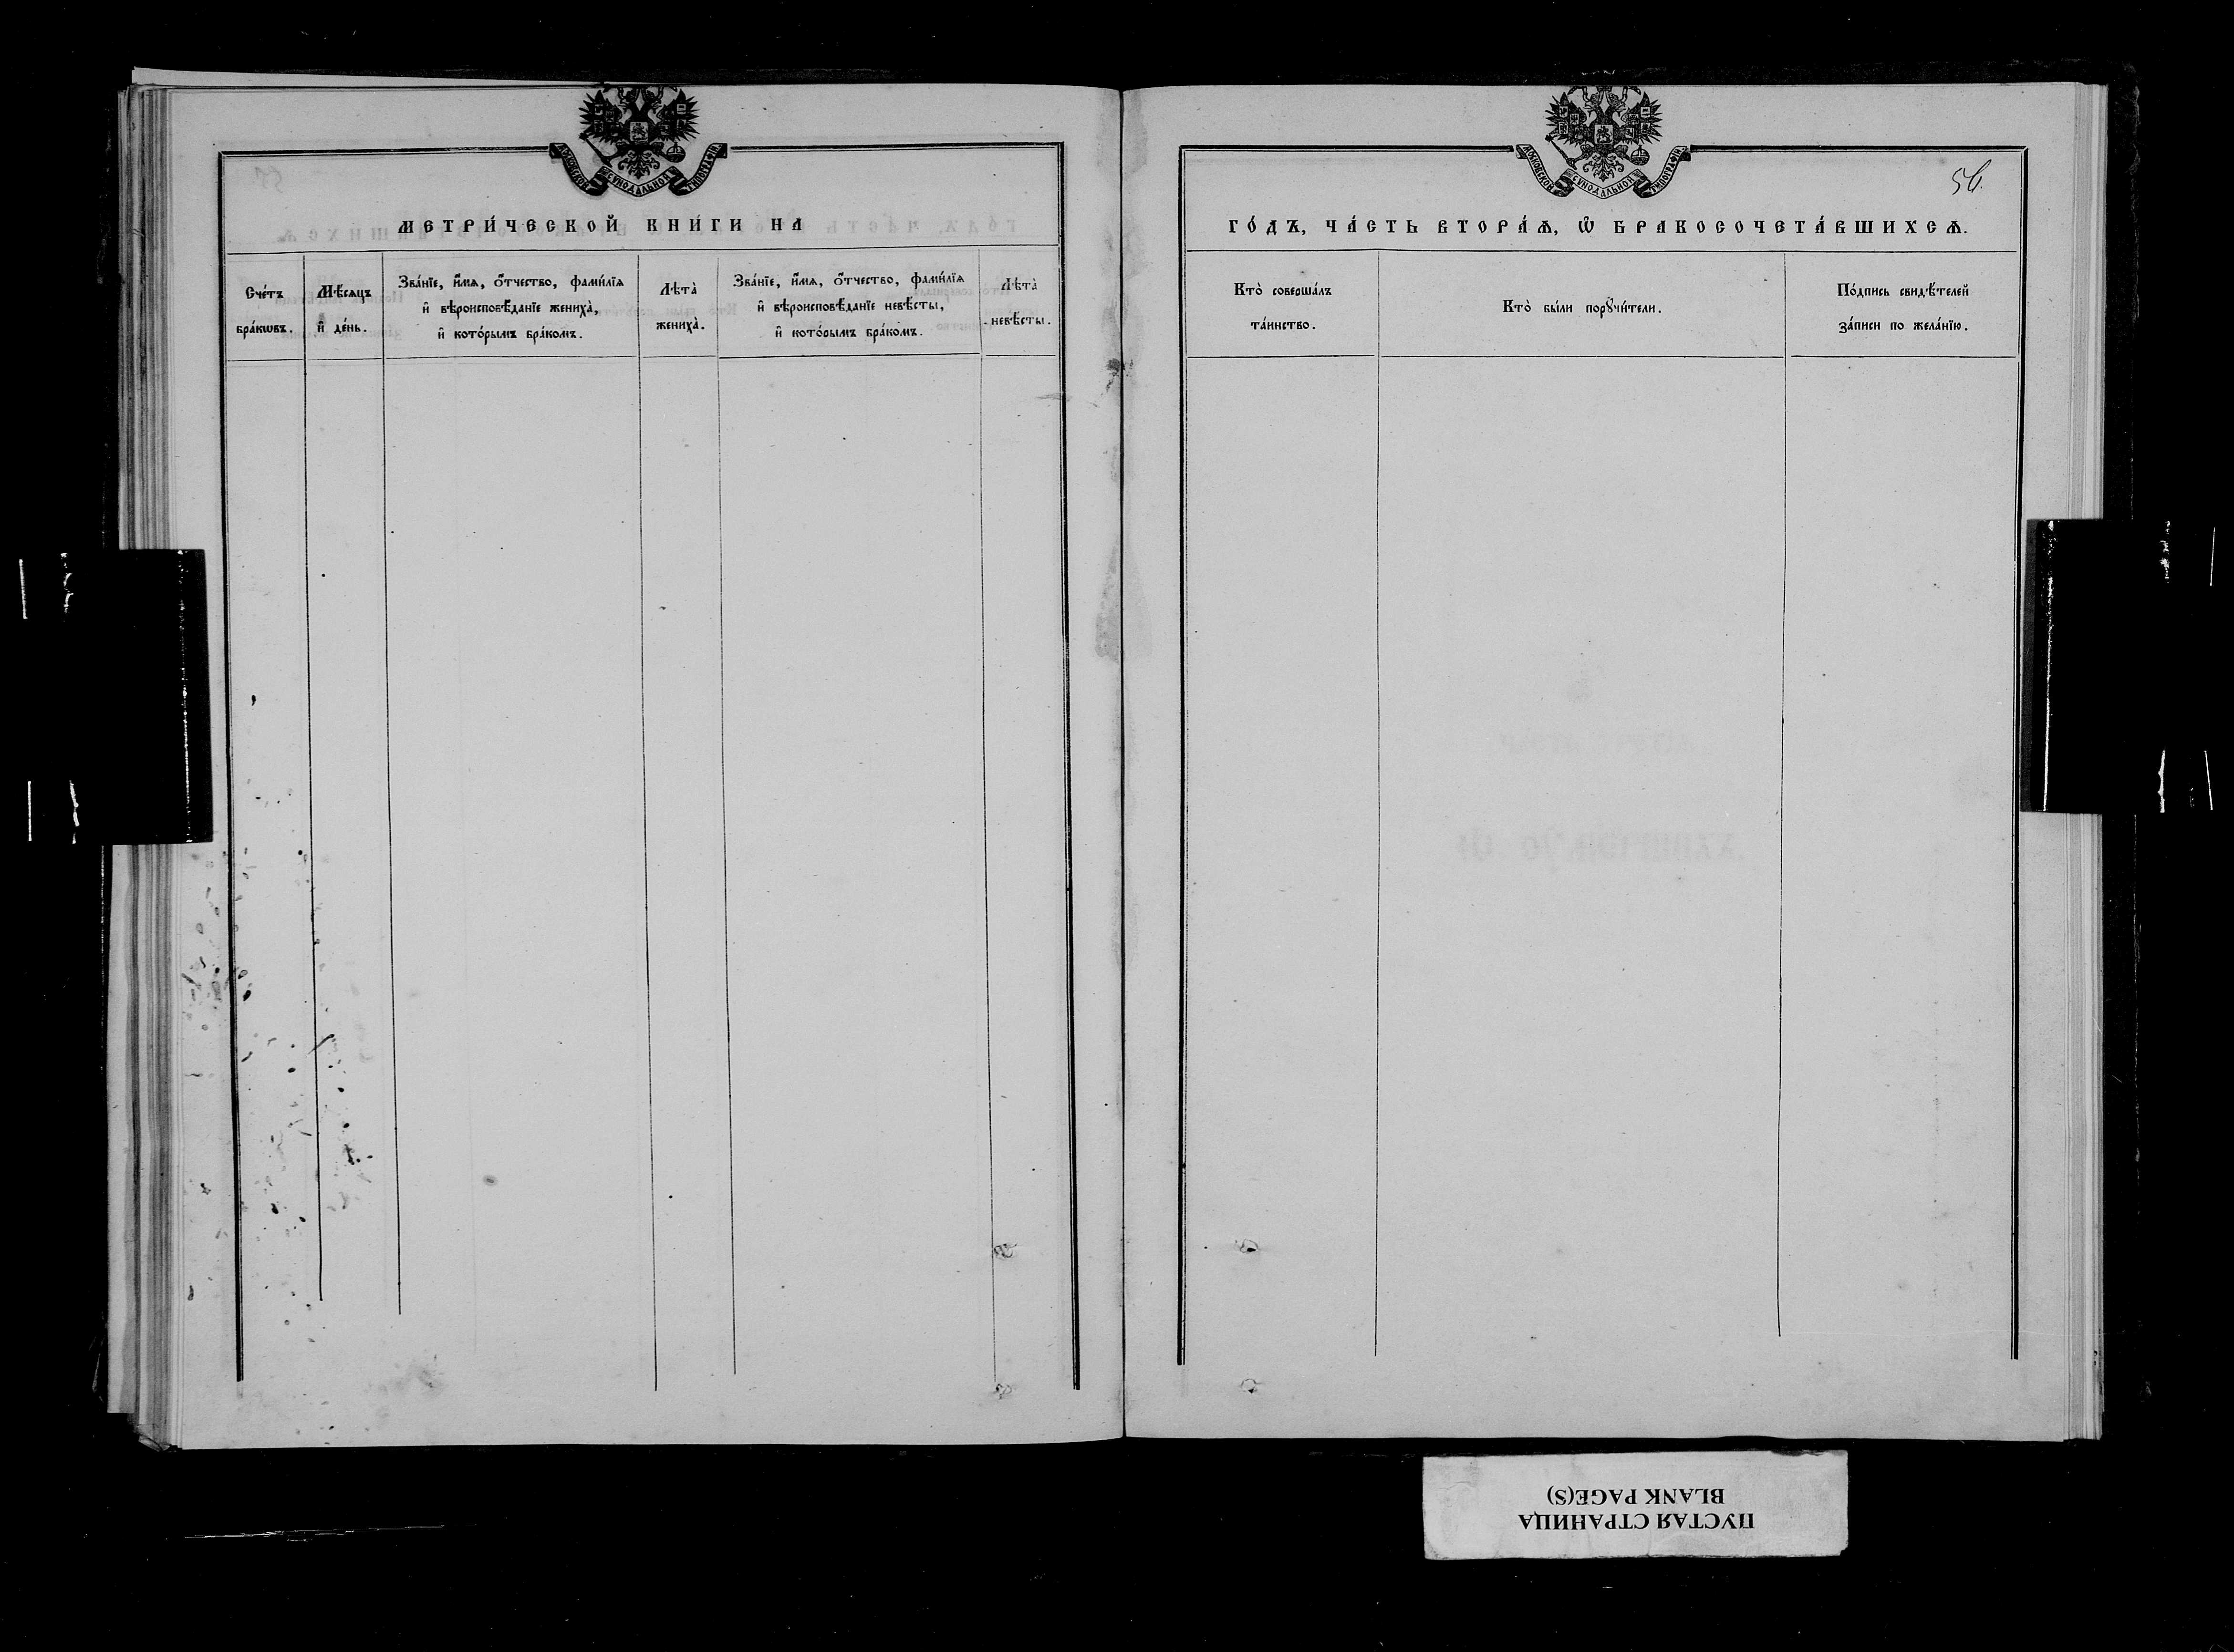 МОСКОВСКОЙ СУНОДАЛЬНОЙ ТИПОГРАФІИ
МЕТРИ́ЧЕСКОЙ КНИ́ГИ НА
Сче́тъ
бра́кѡвъ.
Мѣ́сяцъ
и҆ де́нь.
Зва́нїе, и҆́мѧ, ѻ҆́тчество, фами́лїѧ
и҆ вѣроисповѣ́данїе жениха̀,
и҆ кото́рымъ бра́комъ.
Лѣ́та̀
жениха̀.
Зва́нїе, и҆́мѧ, ѻ҆́тчество, фами́лїѧ
и҆ вѣроисповѣ́данїе невѣ́сты,
и҆ кото́рымъ бра́комъ.
Лѣ́та̀
невѣ́сты.
МОСКОВСКОЙ СУНОДАЛЬНОЙ ТИПОГРАФІИ
56.
ГО́ДЪ, ЧА́СТЬ ВТОРА́Ѧ, Ѽ БРАКОСОЧЕТА́ВШИХСѦ.
Кто̀ соверша́лъ
та́инство.
Кто̀ бы́ли порꙋчи́тели.
По́дпись свидѣ́телей
за́писи по жела́нїю.
ПУСТАЯ СТРАНИЦА
BLANK PAGE(S)